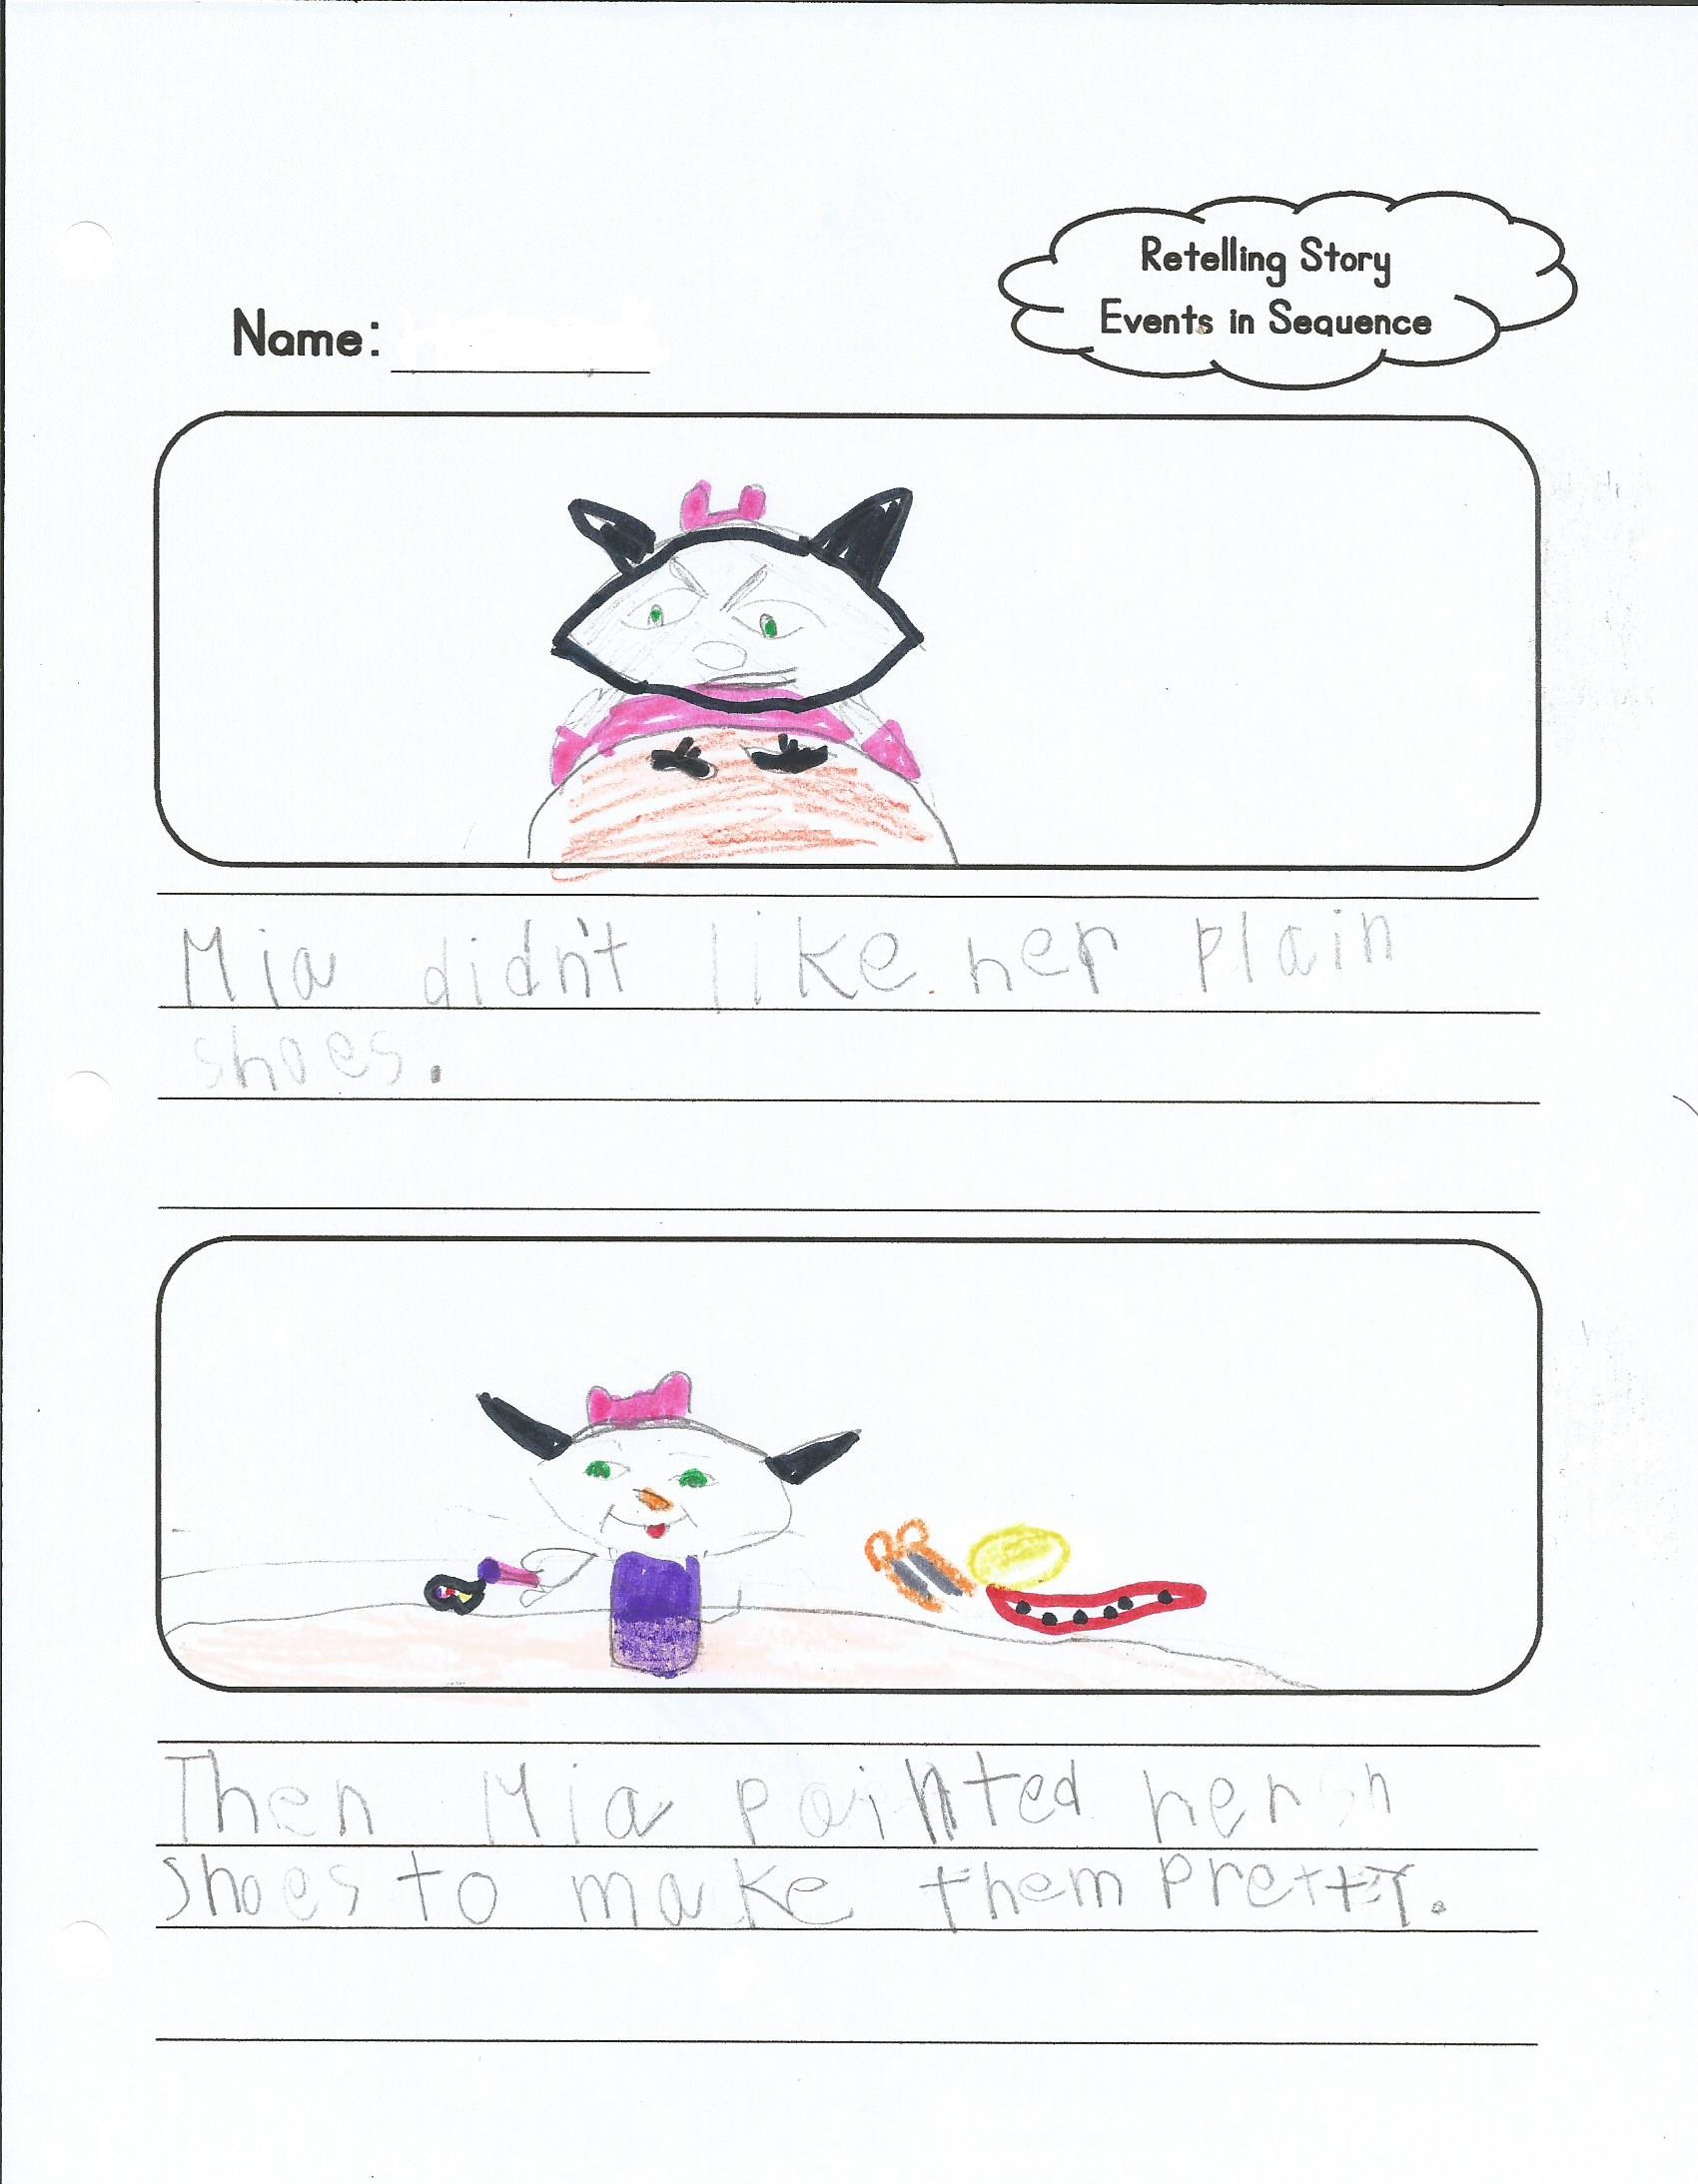 Retelling Story
Events in Sequence
Name:
Mia didn't like her plain
shoes.
Then Mia painted her sh
shoes to make them pretty.